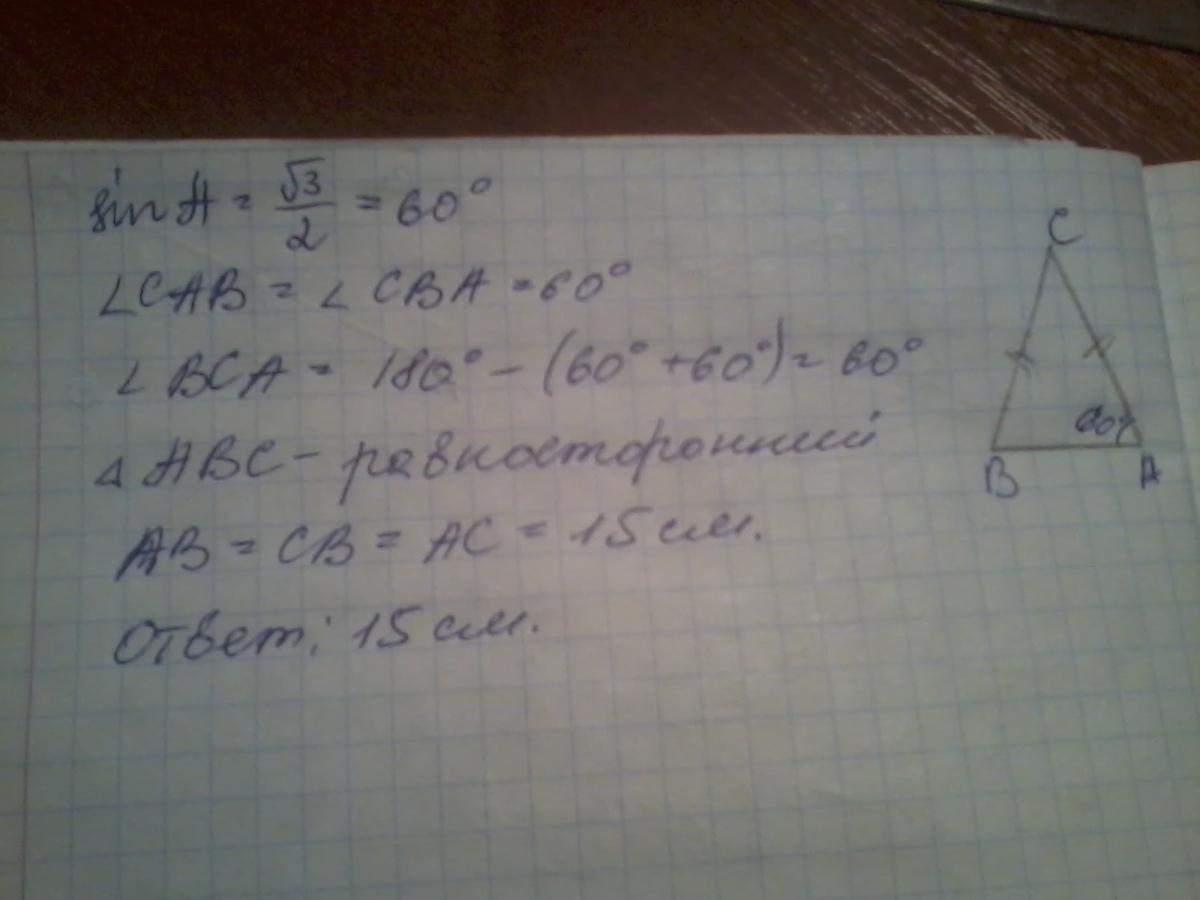 sin A = √3/2 = 60°
∠CAB = ∠CBA = 60°
∠BCA = 180° - (60° + 60°) = 60°
△ABC - равносторонний
AB = CB = AC = 15 см.
Ответ: 15 см.
C
60°
B A